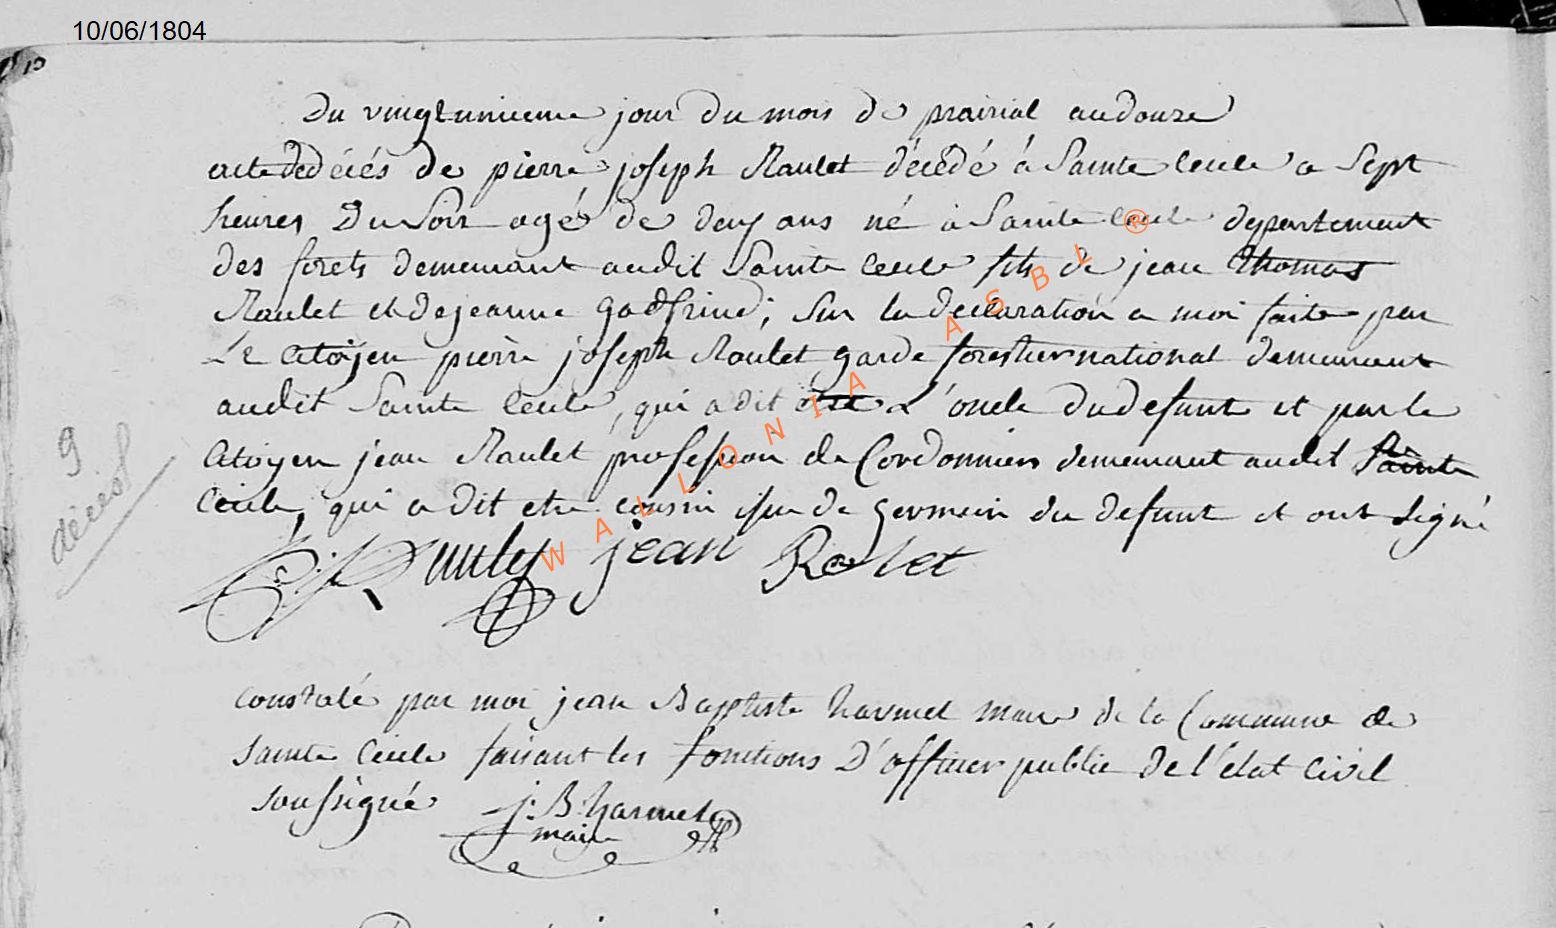 10/06/1804
Du vingtunieme jour du mois de prairial an douze
acte de décés de pierre joseph Raulet décédé à Sainte Cecile a Sept
heures Du Soir agé de deux ans né à Sainte Cecile departement
des forets demeurant audit Sainte Cecile fils de jean Thomas
Raulet et de jeanne godfrind; Sur la declaration a moi faite par
Le Citoyen pierre joseph Raulet garde forestier national demeurant
audit Sainte Cecile, qui a dit etre L'oncle du defunt et par le
Citoyen jean Raulet profession de Cordonnier demeurant audit Sainte
Cecile, qui a dit etre cousin issu de Germain du defunt et ont Signé
9
décès
jean Rolet
constaté par moi jean Baptiste harmel maire de la Commune de
Sainte Cecile faisant les fonctions D'officier public de l'état Civil
soussigné j. B. harmel
maire
WALLONIA ASBL ®